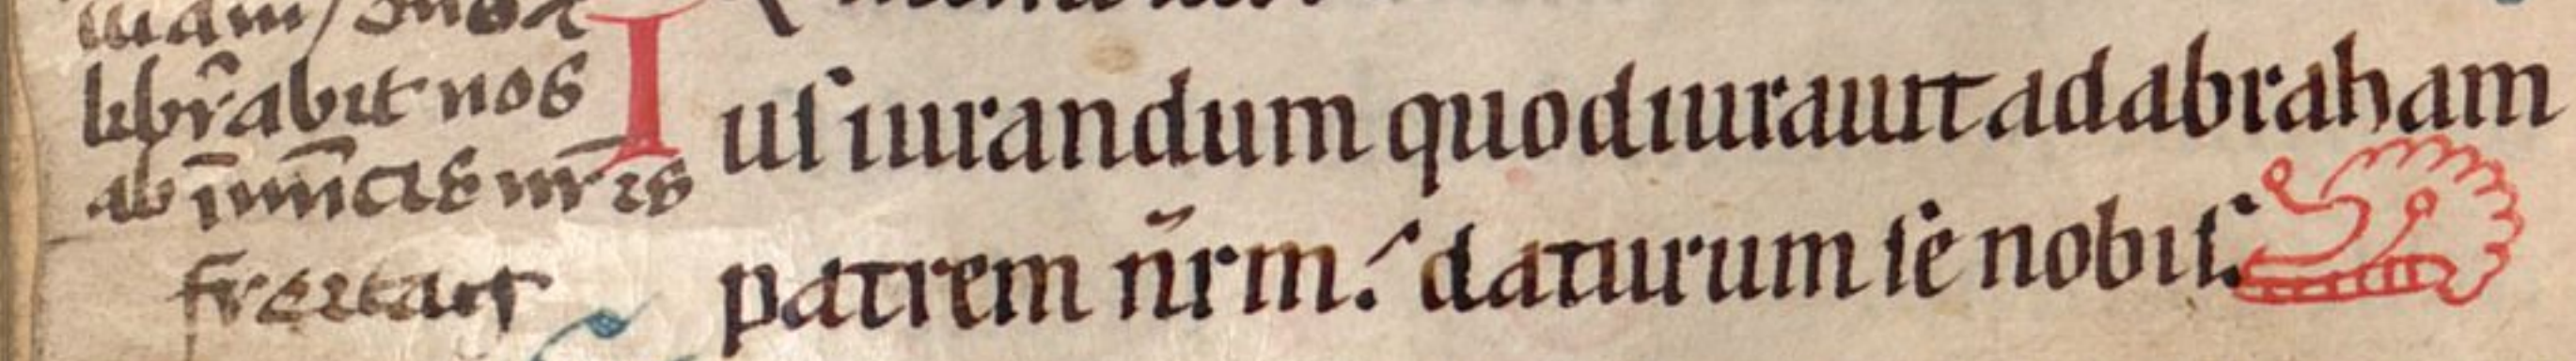 libr̄abit nos
ab īnim̄cis nr̄is
freitag
Iusiurandum quod iurauit ad abraham
patrem nr̄m. daturum se nobis.